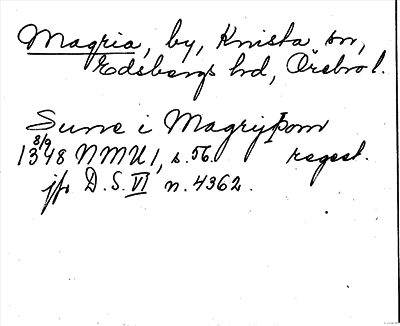 Magria, by, Knista sn,
Edsbergs hd, Örebro l.
Sune i Magryþom
8/9
1348 NMU 1, s. 56. regest.
jfr D.S. VI n. 4362.